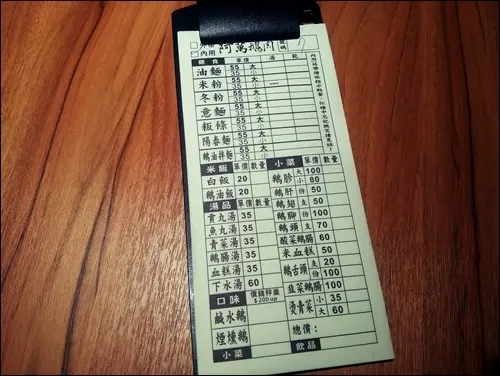 內用 阿萬鵝肉
麵食 單價 湯 乾
油麵 55 大 35 小
米粉 55 大 35 小
冬粉 55 大 35 小
意麵 55 大 35 小
板條 55 大 35 小
陽春麵 55 大 35 小
鵝油拌麵 55 大 35 小
米飯 單價 數量
白飯 20
鵝油飯 20
湯品 單價 數量
貢丸湯 35
魚丸湯 35
青菜湯 35
鵝腸湯 35
血糕湯 35
下水湯 60
口味 價錢秤重 $200up
鹹水鵝
煙燻鵝
小菜
小菜 單價 數量
鵝胗 大 100 小 80
鵝肝 份 50
鵝翅 支 50
鵝腳 份 100
鵝頭 支 70
酸菜鵝腸 60
米血糕 份 50
鵝舌頭 支 20 份 100
韭菜鵝腸 100
燙青菜 小 35 大 60
總價:
飲品